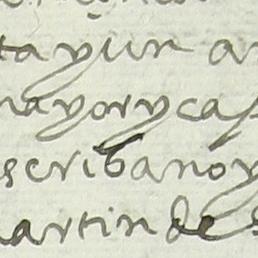 ta y un a
mayor y cap
scribano y
martin de s